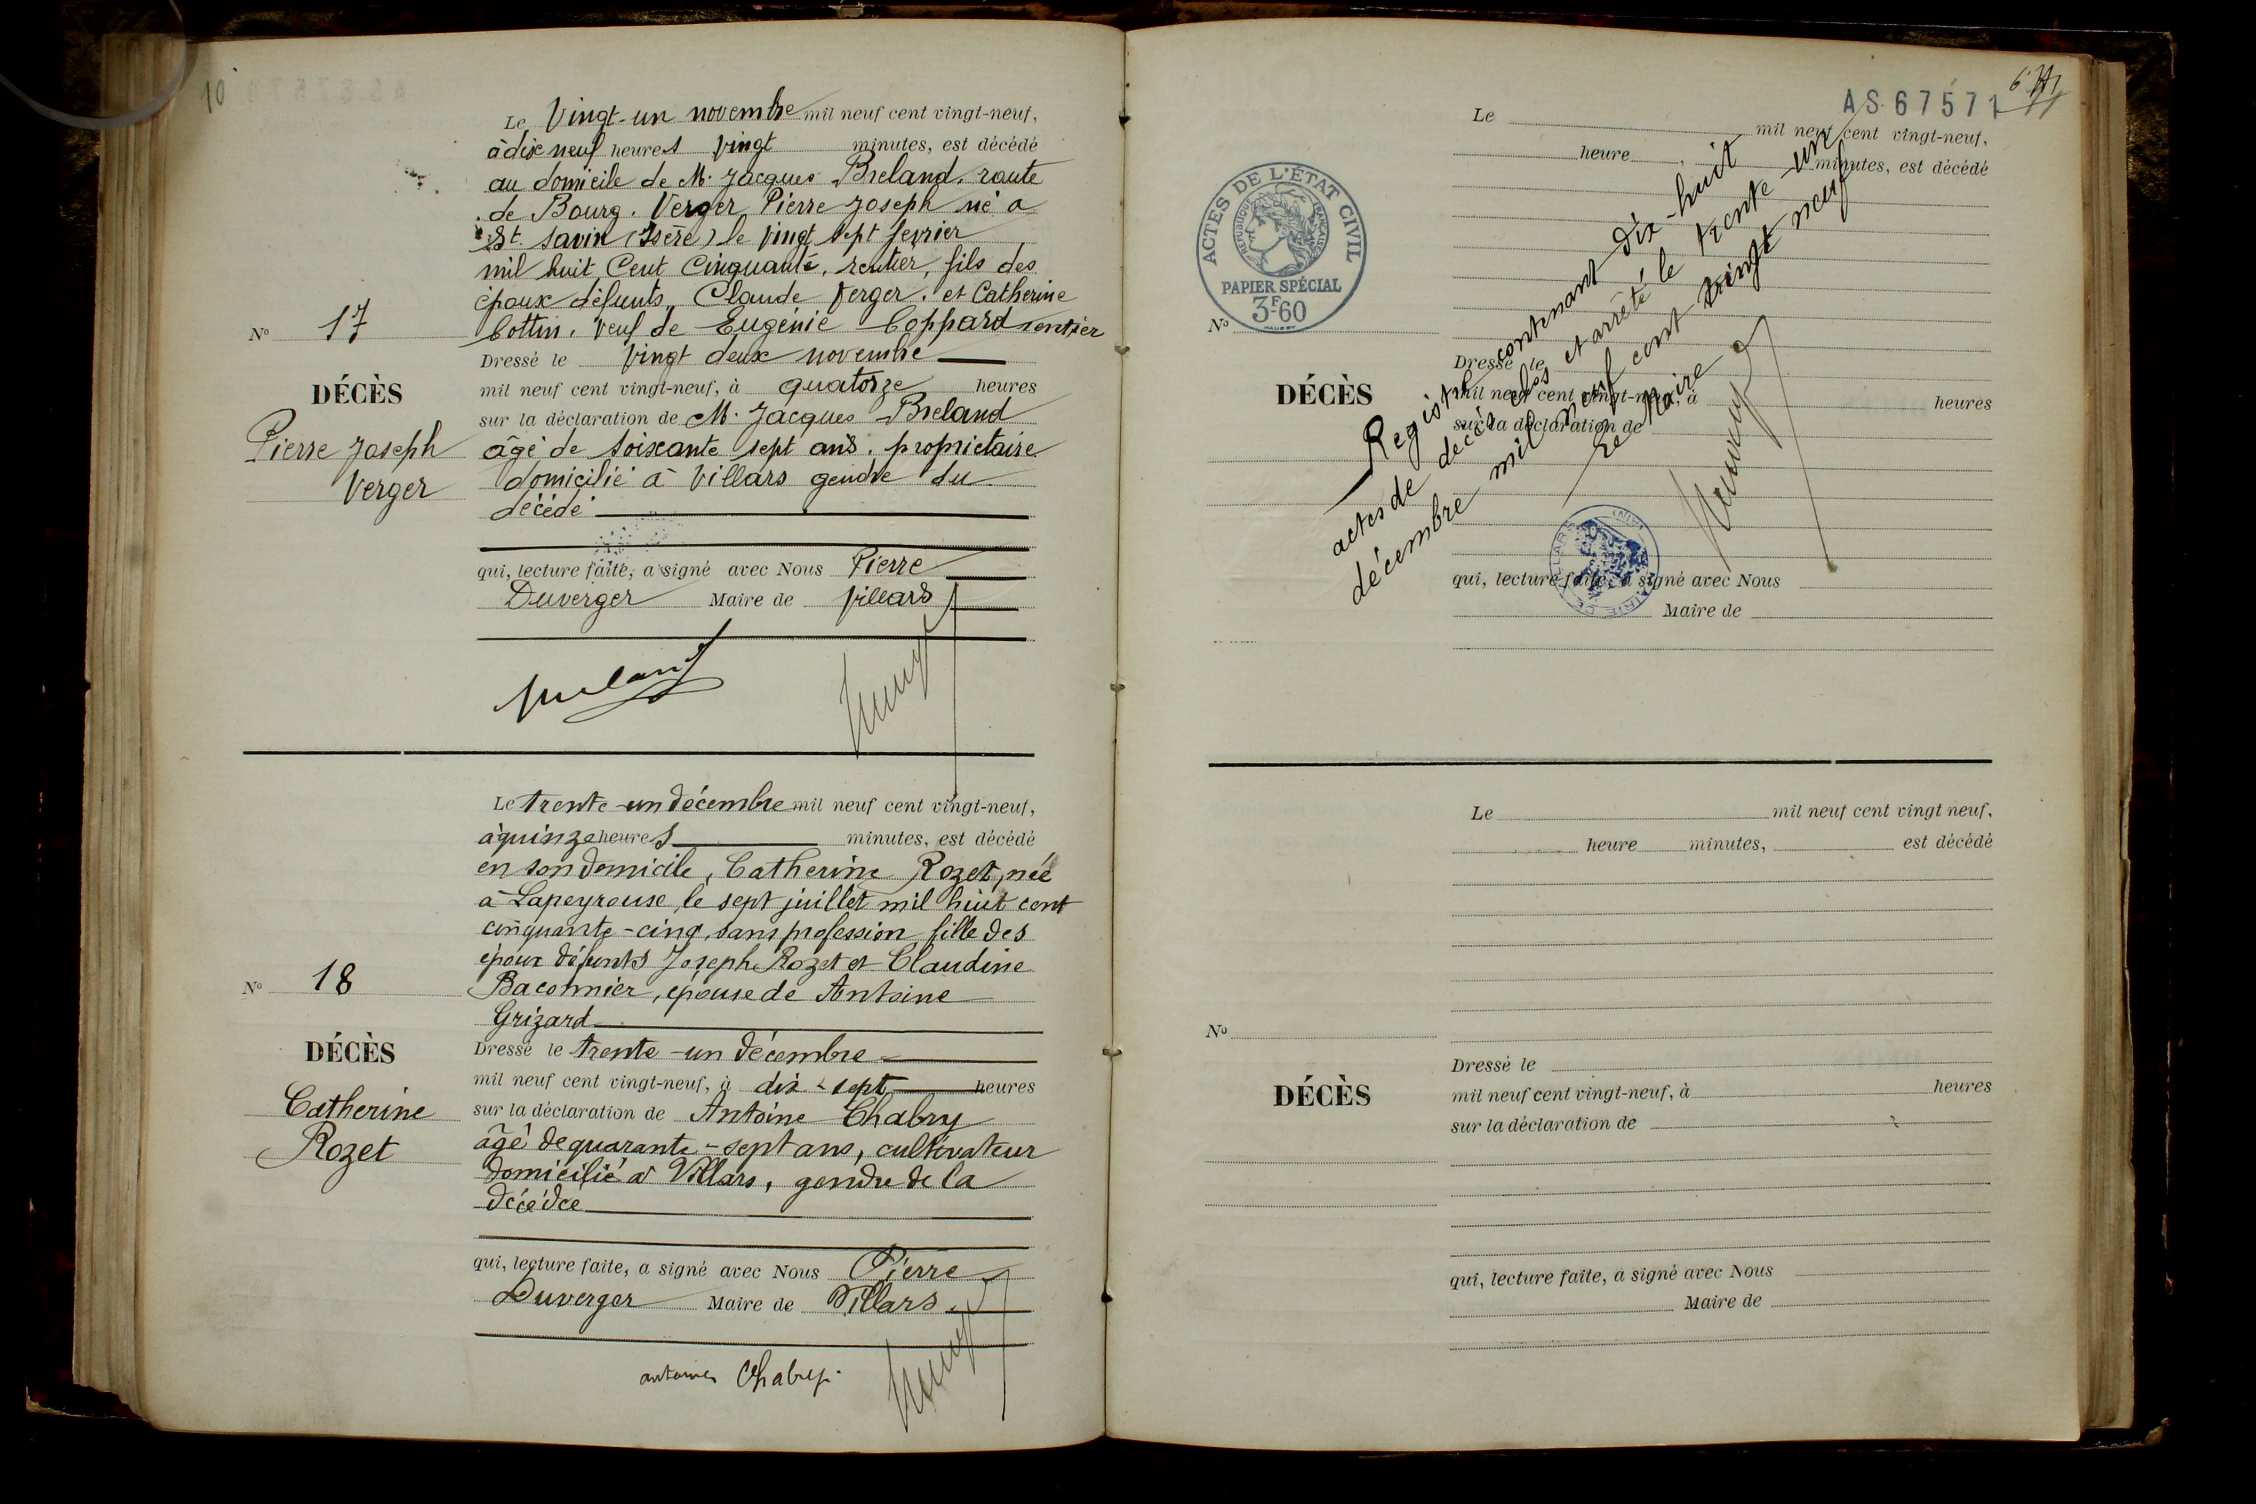 10
Le Vingt-un novembre mil neuf cent vingt-neuf,
à dix neuf heures vingt minutes, est décédé
au domicile de M. Jacques Breland. route
de Bourg. Verger Pierre Joseph né a
St. Savin (Isère) le vingt sept fevrier
mil huit Cent Cinquante, rentier, fils des
époux défunts, Claude Verger. et Catherine
Cottin. Veuf de Eugénie Coppard rentier
Nº 17
DÉCÈS
Pierre Joseph
Verger
Dressé le Vingt deux novembre
mil neuf cent vingt-neuf, à quatorze heures
sur la déclaration de M. Jacques Breland
âgé de soixante sept ans. propriétaire
domicilié à Villars gendre du
décédé
qui, lecture faite, a signé avec Nous Pierre
Duverger Maire de Villars
Le trente-un décembre mil neuf cent vingt-neuf,
à quinze heures minutes, est décédé
en son domicile, Catherine Rozet, née
à Lapeyrouse, le sept juillet mil huit cent
cinquante-cinq, sans profession fille des
époux défunts Joseph Rozet et Claudine
Baconnier, épouse de Antoine
Grizard
Nº 18
DÉCÈS
Catherine
Rozet
Dressé le trente-un décembre
mil neuf cent vingt-neuf, à dix-sept heures
sur la déclaration de Antoine Chabry
âgé de quarante-sept ans, cultivateur
domicilié à Villars, gendre de la
décédée
qui, lecture faite, a signé avec Nous Pierre
Duverger Maire de Villars
antoine Chabry.
AS 67571
ACTES DE L'ÉTAT CIVIL
RÉPUBLIQUE FRANÇAISE
PAPIER SPÉCIAL
3F60
Le mil neuf cent vingt-neuf,
heure minutes, est décédé
Nº
DÉCÈS
Dressé le
mil neuf cent vingt-neuf, à heures
sur la déclaration de
qui, lecture faite, a signé avec Nous
Maire de
Registre contenant dix-huit
actes de décès clos et arrêté le trente un
décembre mil neuf cent vingt neuf
Le Maire
MAIRIE DE VILLARS (AIN)
Le mil neuf cent vingt neuf,
heure minutes, est décédé
Nº
DÉCÈS
Dressé le
mil neuf cent vingt-neuf, à heures
sur la déclaration de
qui, lecture faite, a signé avec Nous
Maire de